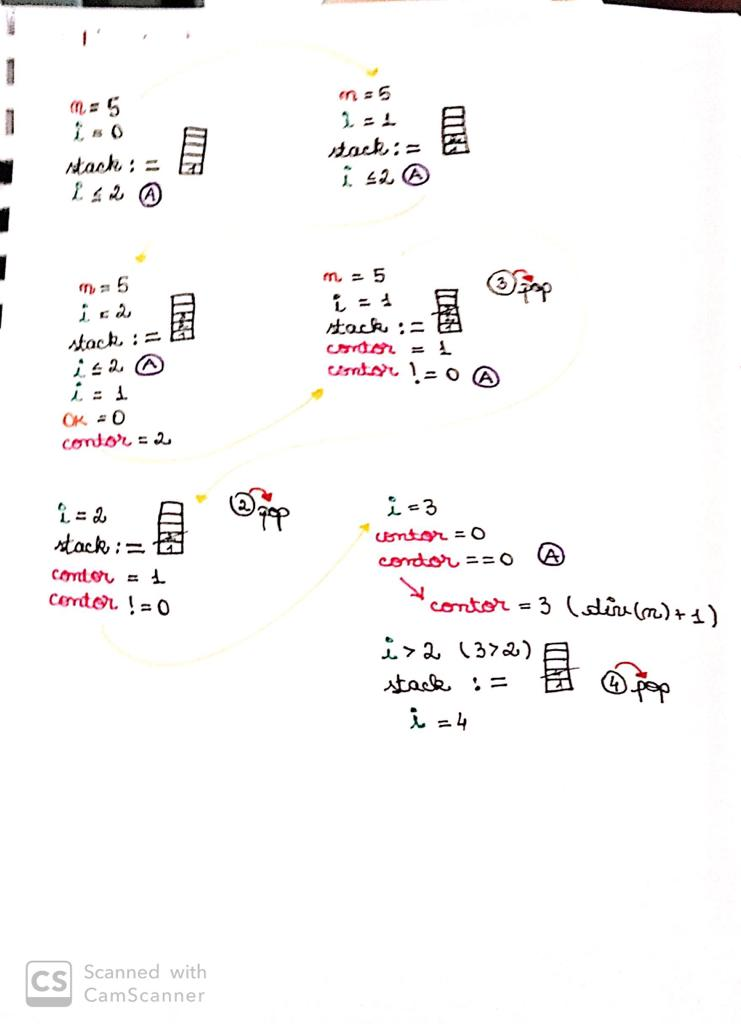 n = 5
i = 0
stack : =
i ≤ 2 (A)
n = 5
i = 1
stack : =
i ≤ 2 (A)
n = 5
i = 2
stack : =
i ≤ 2 (A)
i = 1
OK = 0
contor = 2
n = 5
i = 1
stack : =
contor = 1
contor ! = 0 (A)
3 pop
i = 2
stack : =
contor = 1
contor ! = 0
2 pop
i = 3
contor = 0
contor == 0 (A)
contor = 3 (div(n) + 1)
i > 2 (3>2)
stack : =
4 pop
i = 4
CS Scanned with
CamScanner